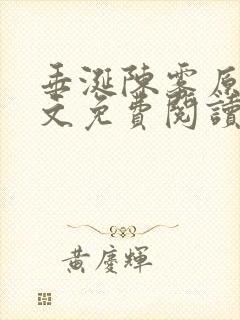 垂涎陳雾原
文免費閱讀
黃慶輝